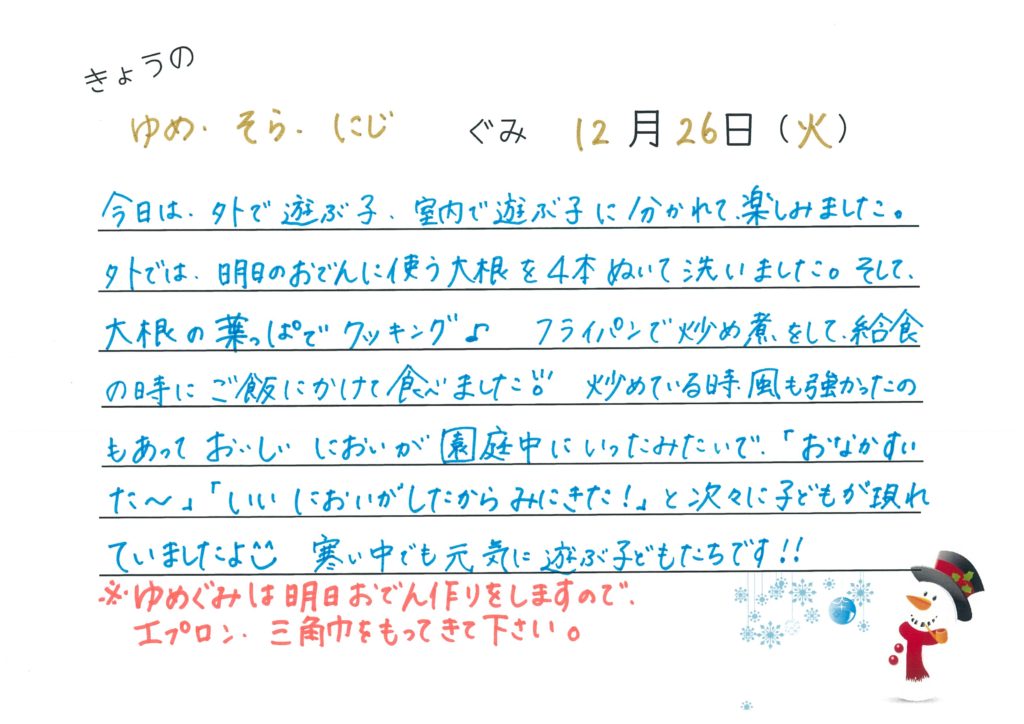 きょうの
ゆめ・そら・にじ ぐみ 12月26日(火)
今日は、外で遊ぶ子、室内で遊ぶ子に分かれて、楽しみました。
外では、明日のおでんに使う大根を4本ぬいて洗いました。そして、
大根の葉っぱでクッキング♪ フライパンで炒め煮をして、給食
の時にご飯にかけて食べました。 炒めている時、風も強かったの
もあっておいしいにおいが園庭中にいったみたいで、「おなかすい
た〜」「いいにおいがしたからみにきた!」と次々に子どもが現れ
ていましたよ 寒い中でも元気に遊ぶ子どもたちです!!
※ゆめぐみは明日おでん作りをしますので、
エプロン、三角巾をもってきて下さい。